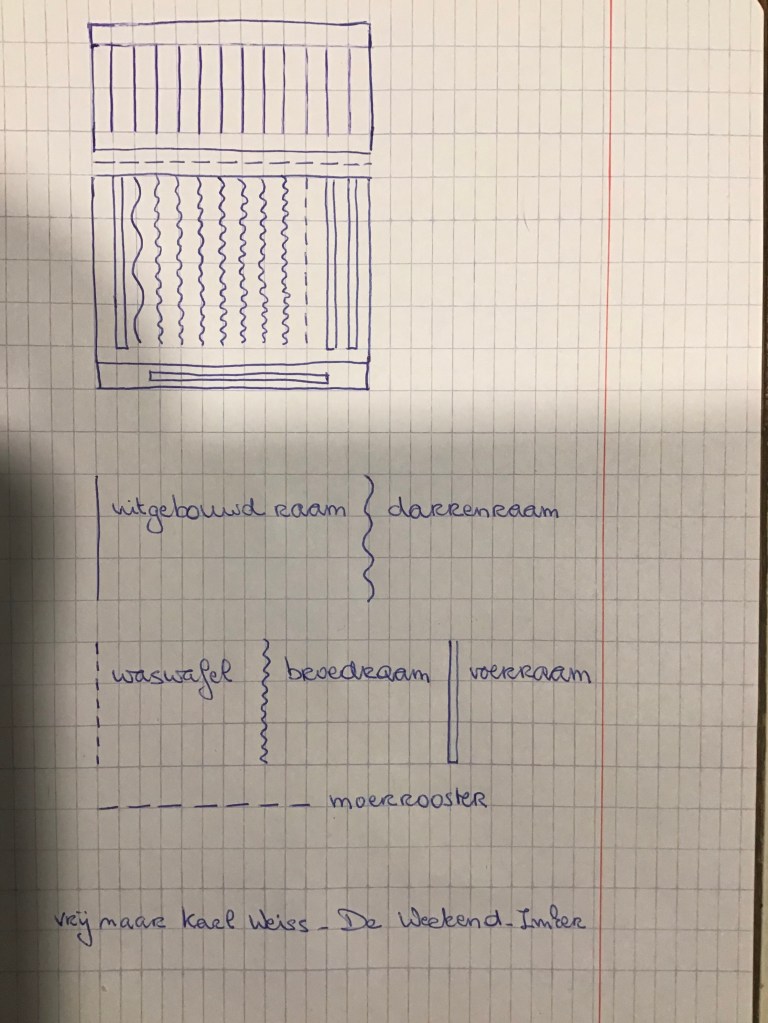 uitgebouwd raam darrenraam
waswafel broedraam voerraam
moerrooster
vrij maar Karl Weiss - De Weekend-Imker